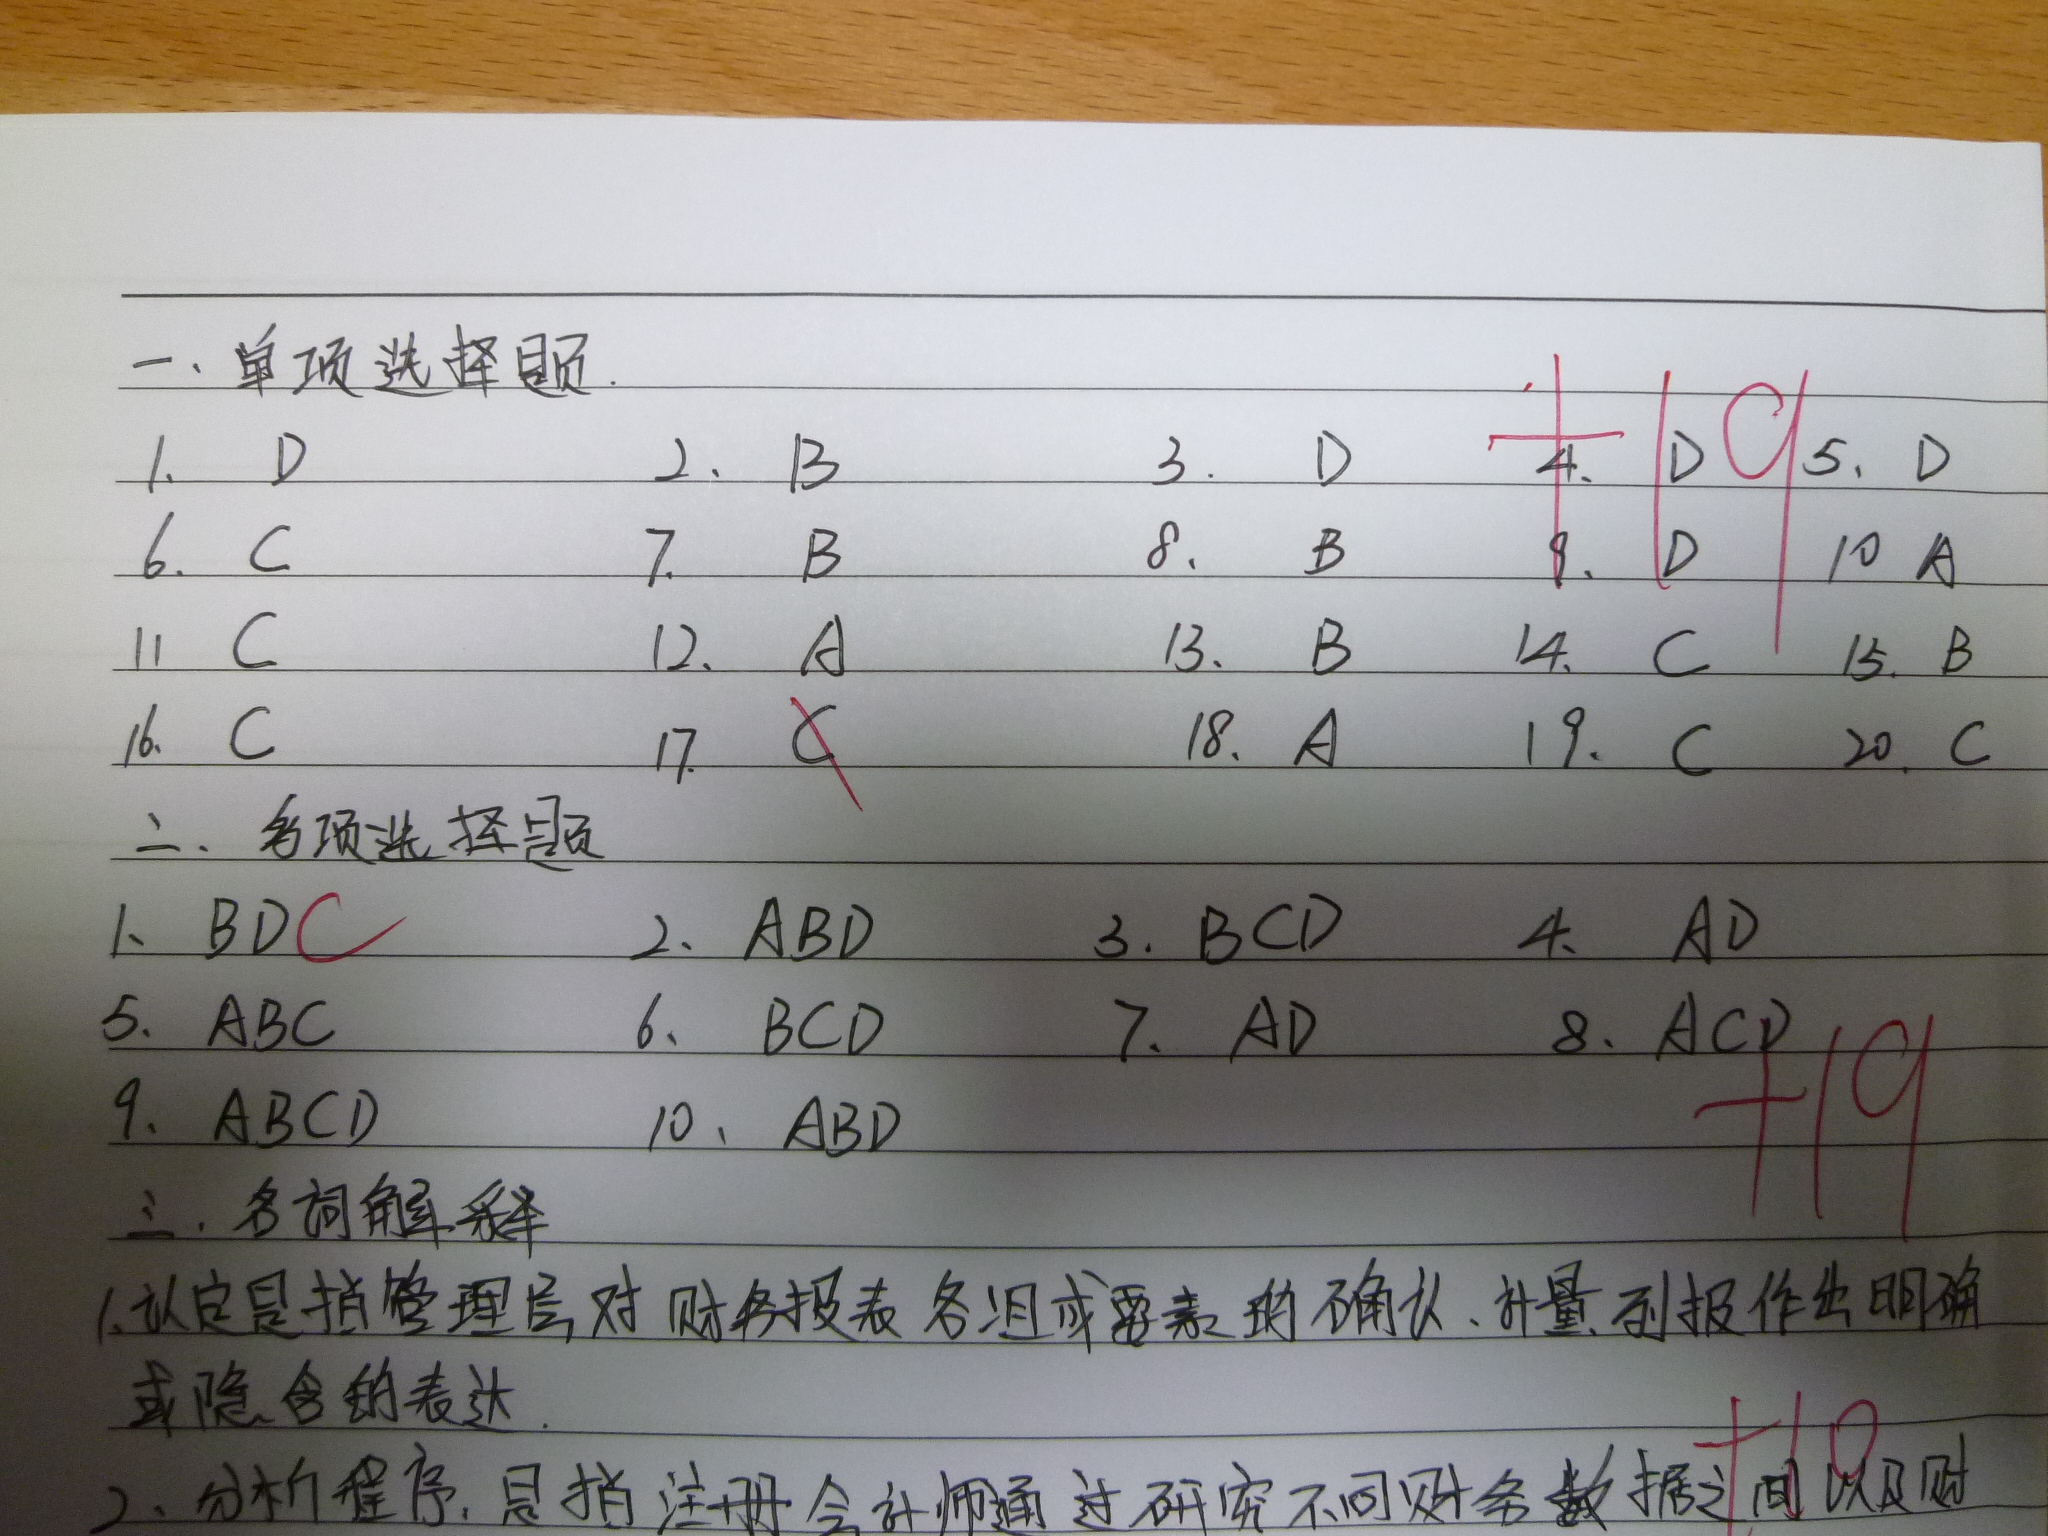 一、单项选择题.
1. D 2. B 3. D 4. D 5. D
+19
6. C 7. B 8. B 9. D 10 A
11 C 12. A 13. B 14. C 15. B
16. C 17. C 18. A 19. C 20. C
二、多项选择题
1、BDC 2、ABD 3. BCD 4、AD
5、ABC 6、BCD 7、AD 8、ACD
+19
9、ABCD 10、ABD
三、名词解释
1.认定是指管理层对财务报表各组成要素的确认、计量、列报作出明确
或隐含的表达.
+10
2、分析程序,是指注册会计师通过研究不同财务数据之间以及财